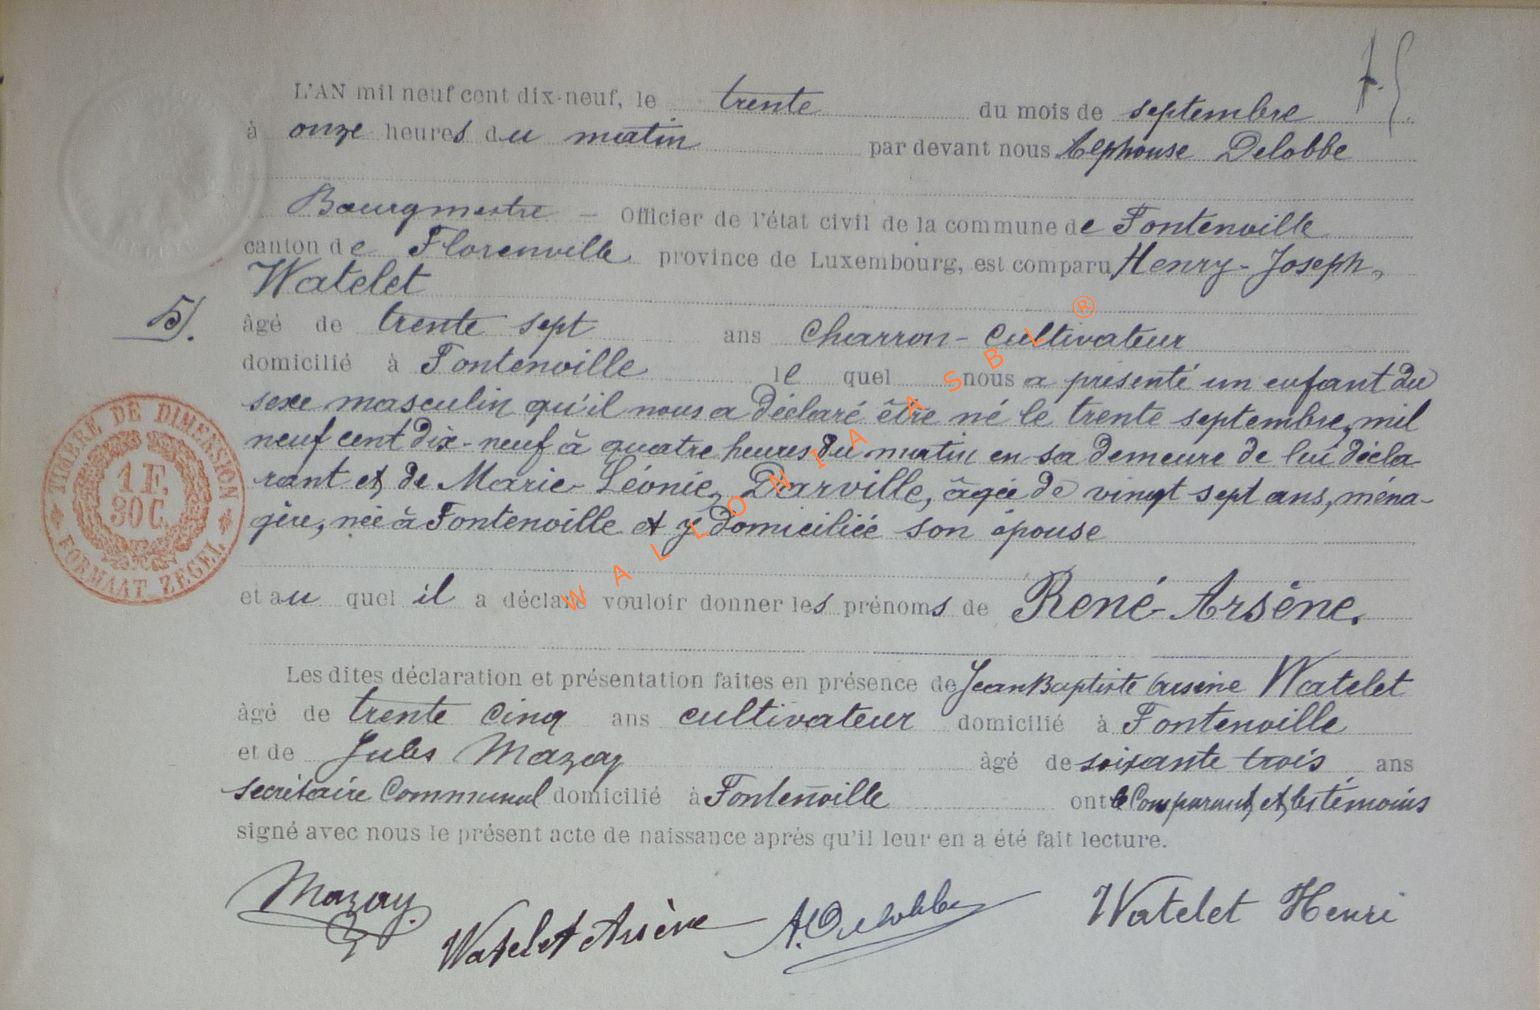 L'AN mil neuf cent dix-neuf, le trente du mois de septembre
à onze heures du matin par devant nous Alphonse Delobbe
Bourgmestre - Officier de l'état civil de la commune de Fontenoille
canton de Florenville province de Luxembourg, est comparu Henry-Joseph,
Watelet
5).
âgé de trente sept ans Charron-Cultivateur
domicilié à Fontenoille le quel nous a présenté un enfant du
sexe masculin qu'il nous a déclaré être né le trente septembre, mil
neuf cent dix-neuf à quatre heures du matin en sa demeure de lui décla
rant et de Marie-Léonie, Darville, âgée de vingt sept ans, ména-
gère, née à Fontenoille et y domiciliée son épouse
TIMBRE DE DIMENSION
1 F.
30 C.
FORMAAT ZEGEL
et au quel il a déclaré vouloir donner les prénoms de René-Arsène.
Les dites déclaration et présentation faites en présence de Jean Baptiste Arsène Watelet
âgé de trente cinq ans cultivateur domicilié à Fontenoille
et de Jules Mazay âgé de soixante trois ans
secrétaire Communal domicilié à Fontenoille ont le Comparant et les témoins
signé avec nous le présent acte de naissance après qu'il leur en a été fait lecture.
Mazay
Watelet Arsène
A. Delobbe
Watelet Henri
WALLONIA ASBL ®